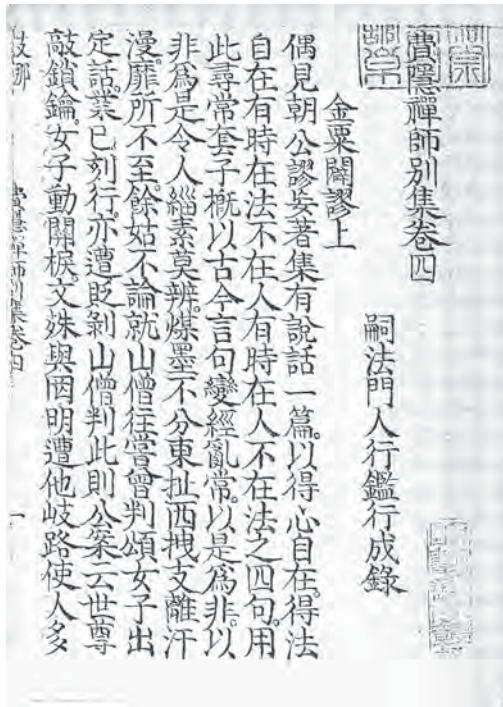 費隱禪師別集卷四
嗣法門人行鑑行成錄
金粟闢謬上
偶見朝公謬妄著集有說話一篇。以得心自在。得法
自在有時在法不在人有時在人不在法之四句。用
此尋常套子。概以古今言句變經亂常。以是爲非。以
非爲是令人緇素莫辨。煤墨不分東扯西拽支離汗
漫。靡所不至。餘姑不論就山僧往嘗曾判頌女子出
定話。業已刻行。亦遭貶剝山僧判此則公案云世尊
敲鎖鑰。女子動關棙。文殊與罔明遭他岐路使人多
費隱禪師別集卷四
一